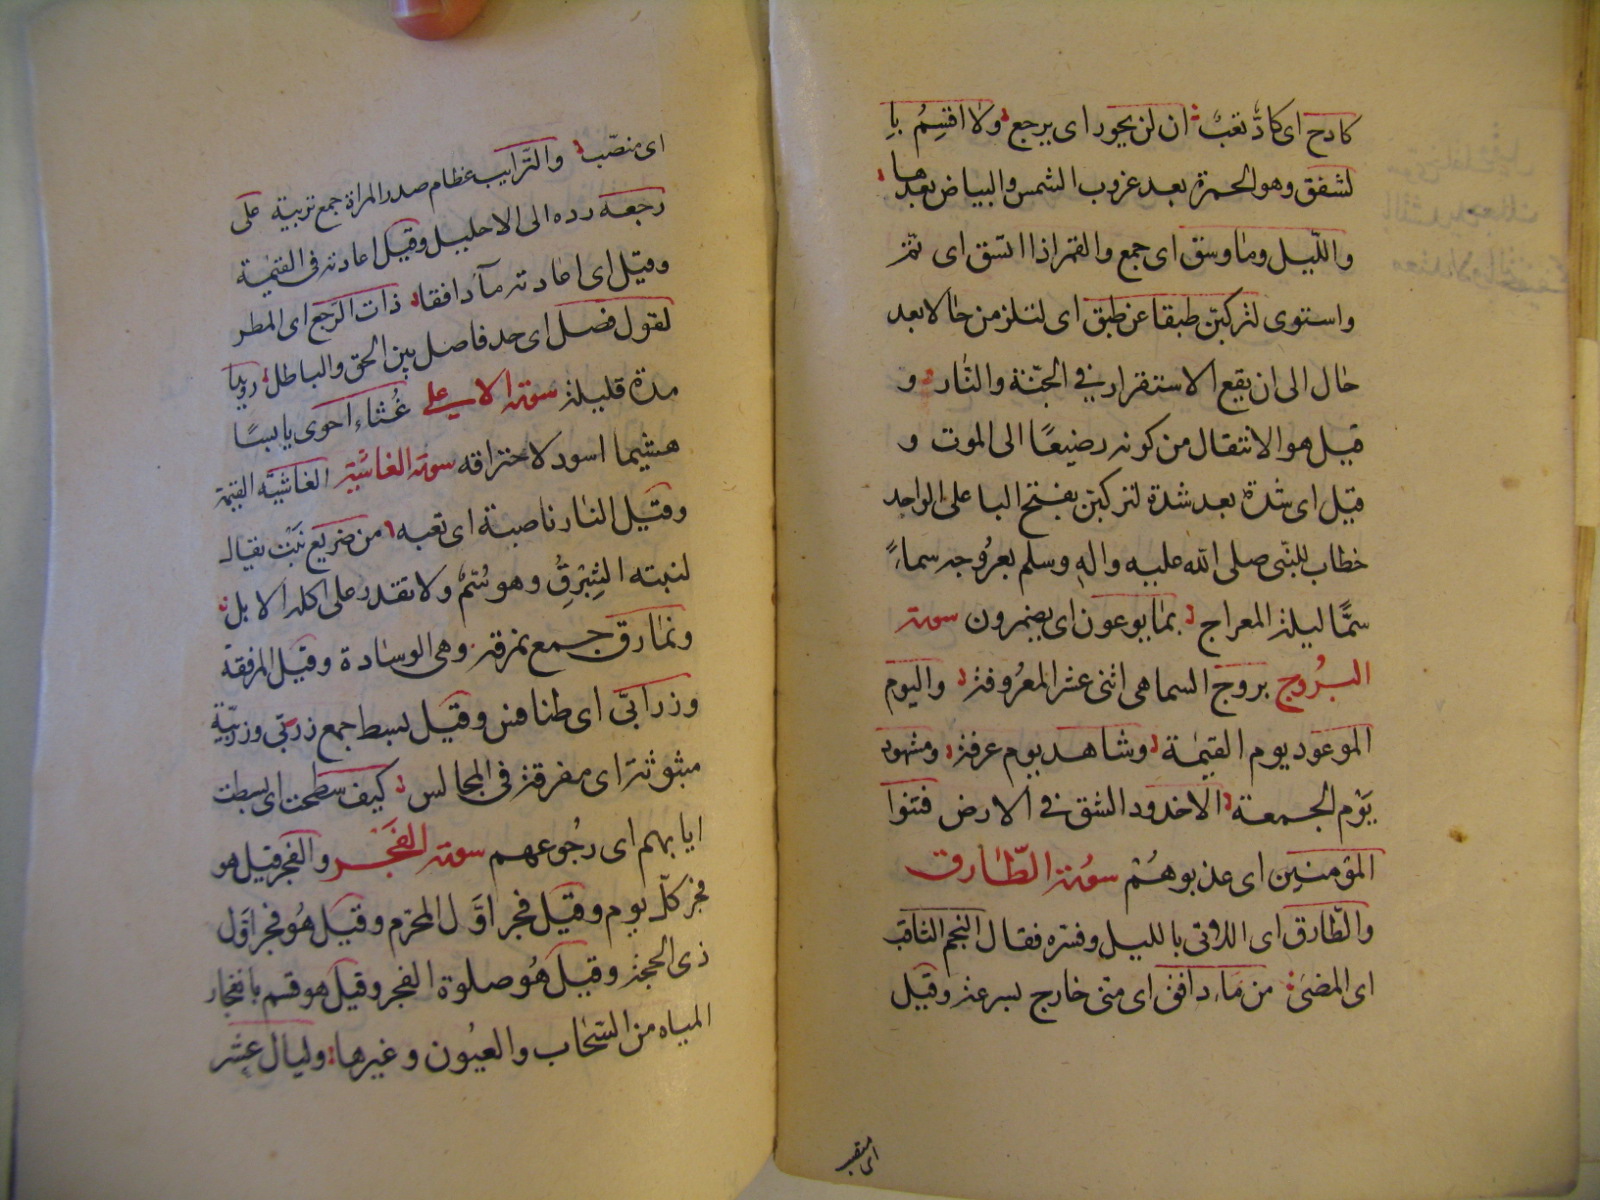 كادح اى كادّ تعبٌ ان لن يحور اى يرجع ولا اقسِمُ با
لشفق وهو الحمرة بعد غروب الشمس والبياض بعدها
والليل وما وسق اى جمع والقمر اذا اتسق اى تمّ
واستوى لتركبنّ طبقا عن طبق اى لتلزمن حالا بعد
حال الى ان يقع الاستقرار فى الجنّة والنّار و
قيل هو الانتقال من كونه رضيعًا الى الموت و
قيل اى شدة بعد شدة لتركبنّ بفتح البا على الواحد
خطاب للنبّى صلى اللّه عليه واله وسلم بعروجه سماءً
سمًّا ليلة المعراج بما يوعون اى يضمرون سورة
البُروج بروج السما هى اثنى عشر المعرُوفة واليوم
الموعود يوم القيٰمة وشاهد يوم عرفة ومشهود
يَوْم الجمعة الاخدود الشق فى الارض فتنوا
المؤمنين اى عذبوهُمْ سورة الطّارق
والطّارق اى الاتى بالليل وفسره فقال النجم الثاقب
اى المضئ من مَاء دافق اى منى خارج بسرعة وقيل
اى منصّب
اى منصّب والتَّرايب عظام صدر المراة جمع تربية على
رجعه رده الى الاحليل وقيل اعادته فى القيٰمة
وقيل اى اعادته مآءً دافقا ذات الرّجع اى المطر
لقول فصل اى حد فاصل بين الحق والباطل رويدا
مدة قليلة سورة الاعلى غُثاءً احوى يابسًا
هشيما اسود لاحتراقه سورة الغاشية الغاشية القيٰمة
وقيل النار ناصبة اى تعبه من ضريع نَبْت يقال
لنبته الشِبْرِقُ وهو سُمٌّ ولا تقدر على اكله الابل
ونمارق جمع نمرقة وهى الوسادة وقيل المرفقة
وزرابىّ اى طنافس وقيل بسط جمع زربّى وزربّية
مبثوثة اى مفرقة فى المجالس كيف سطحت اى بسطت
ايابهم اى رجُوعهم سورة الفَجْر والفجر قيل هو
فجر كلّ يوم وقيل فجر اوّل المحرّم وقيل هُو فجر اوّل
ذى الحجة وقيل هُو صلوة الفجر وقيل هو قسم بانفجار
المياه من السّحاب والعيُون وغيرها وليال عشر